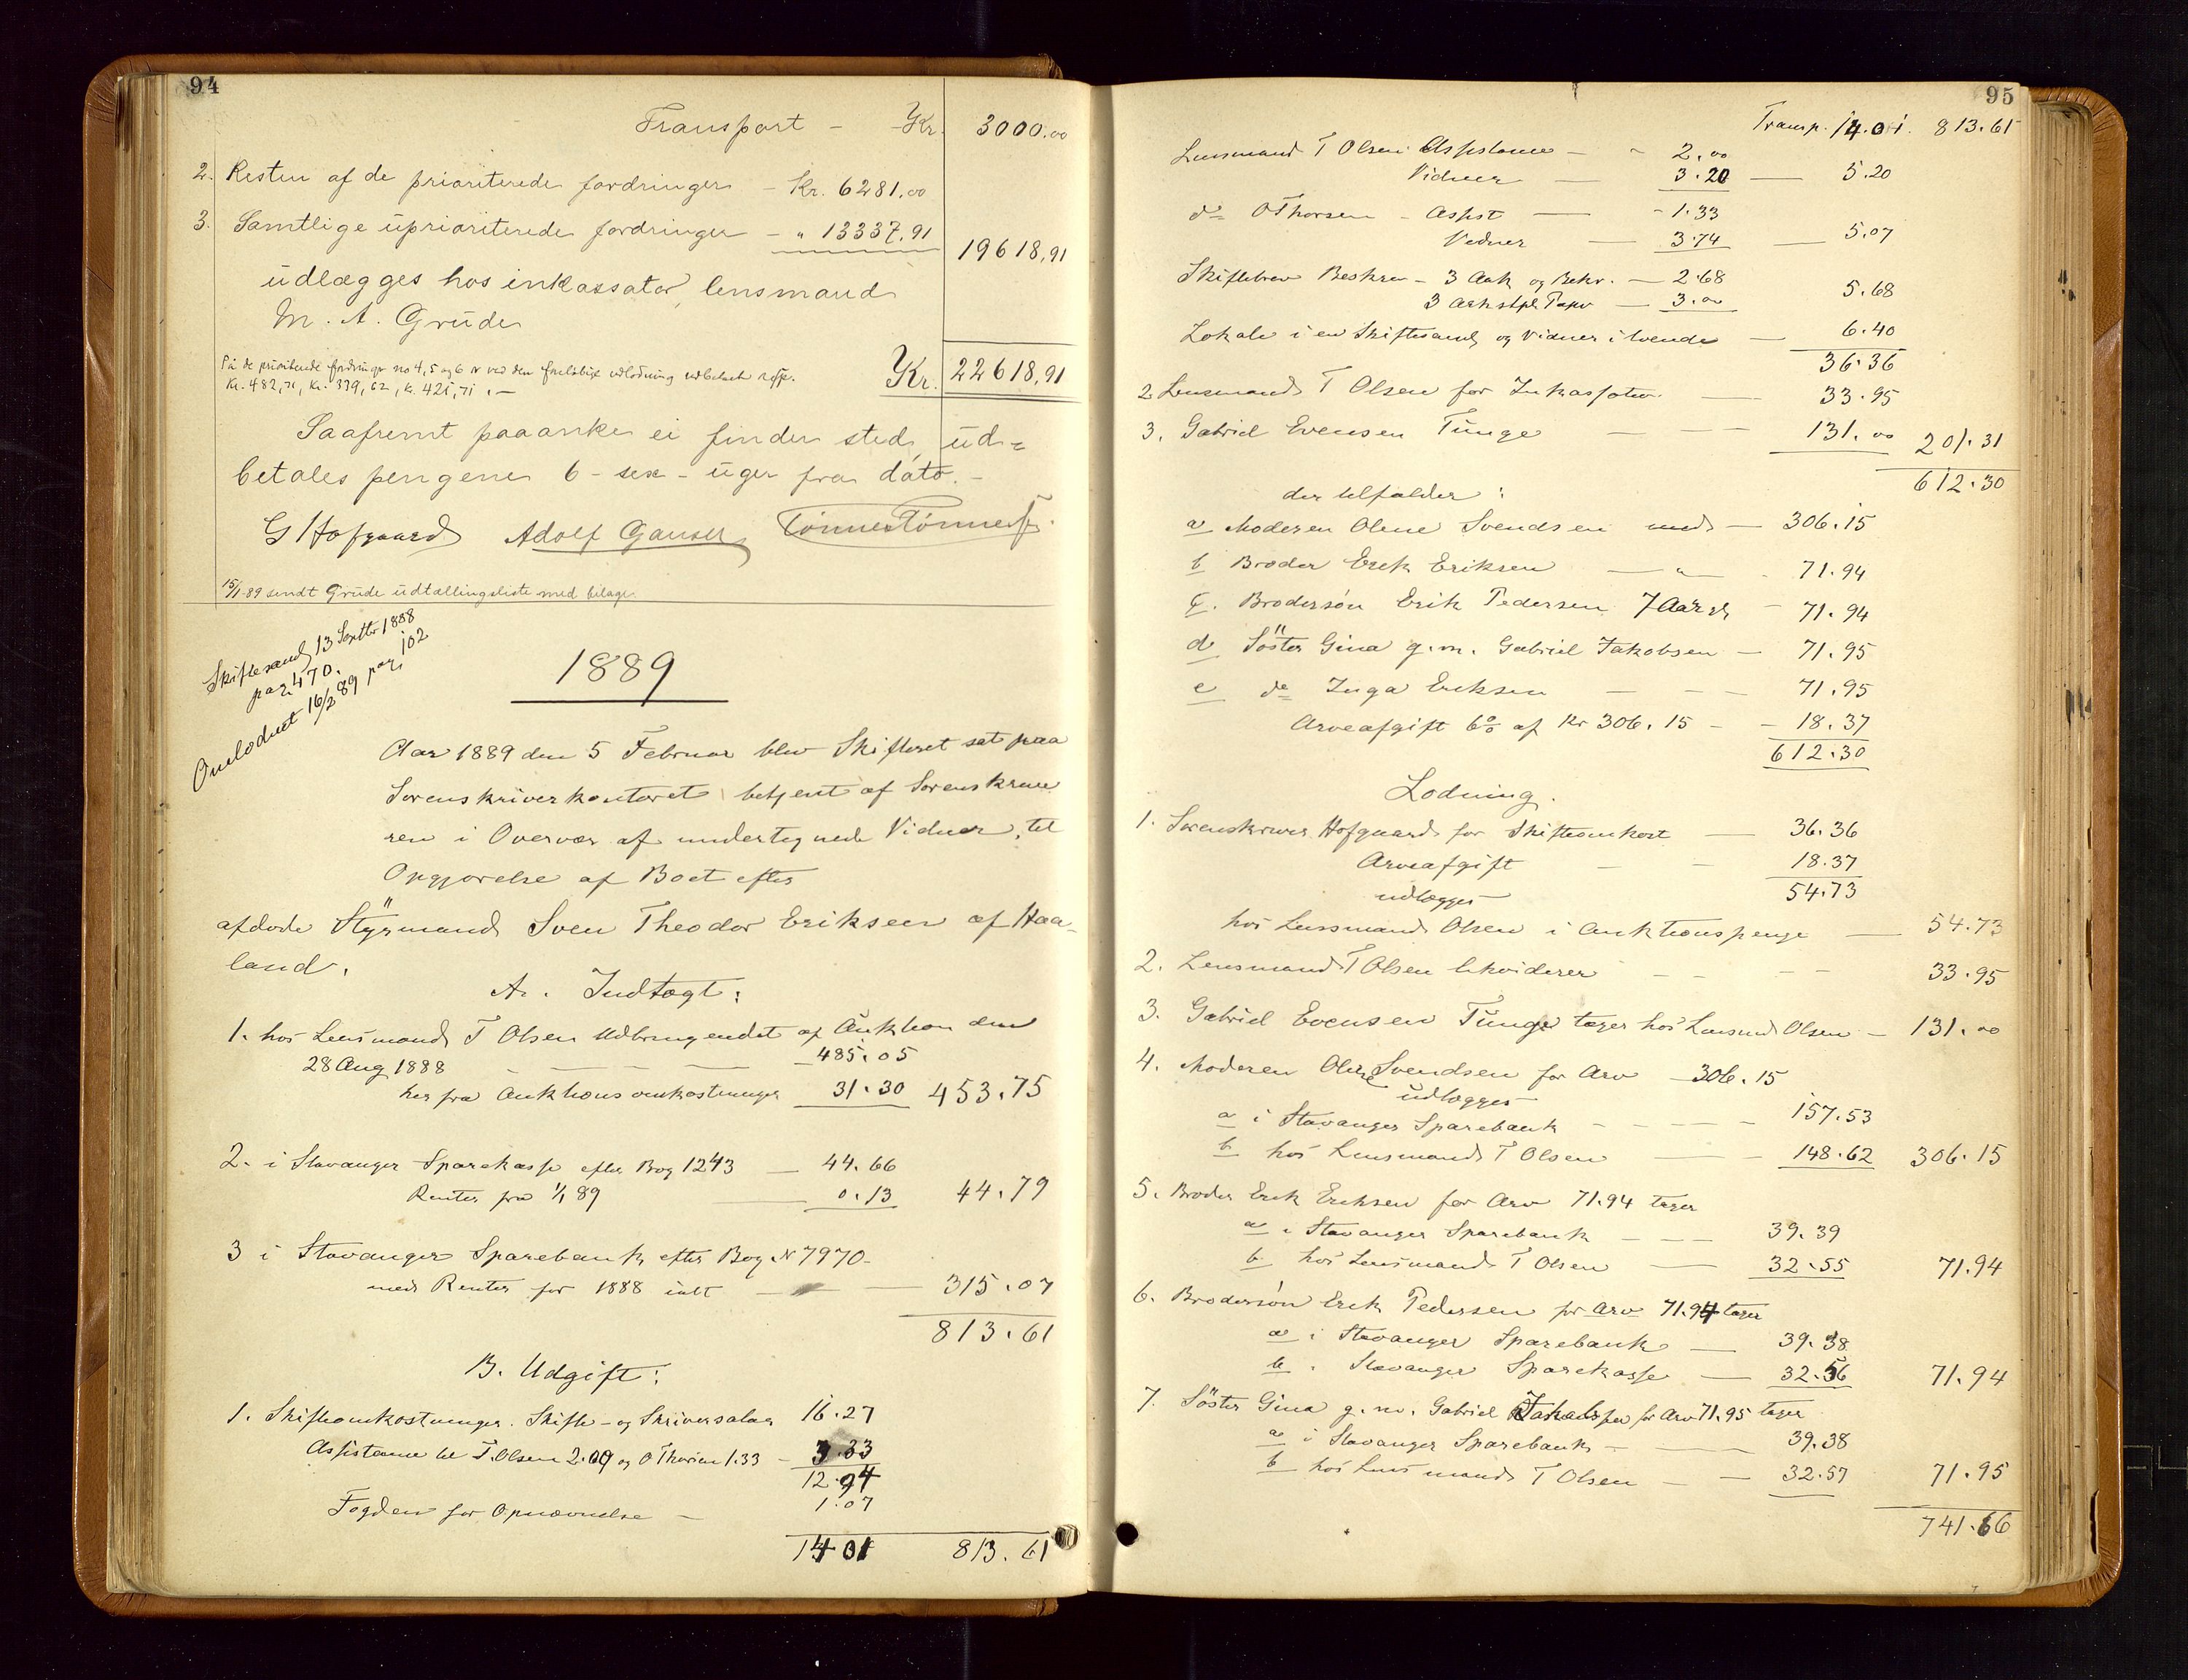 94
Transport - Kr. 3000.00
2. Resten af de prioriterede fordringer - Kr. 6281.00
3. Samtlige uprioriterede fordringer - " 13337.91 19618,91
udlægges hos inkassator, lensmand
M. A. Grude
På de prioriterede fordringer no 4, 5 og 6 er ved den foreløbige udlodning udbetalt resp. Kr. 22618,91
Kr. 482,71, Kr. 339,62, Kr. 421,71. -
Saafremt paaanke ei finder sted, ud=
betales pengene 6 - sex - uger fra dato. -
G Hofgaard Adolf Gauser Tönnes Tönnes
15/1 89 sendt Grude udtællingsliste med bilage.
Skiftesaml 13 Septbr 1888
pag. 470.
Omlodnet 16/2 89 pag. 102
1889
Aar 1889 den 5 Februar blev Skifteret sat paa
Sorenskriverkontoret betjent af Sorenskrive
ren i Overvær af undertegnede Vidner, til
Opgjørelse af Boet efter
afdøde Styrmand Sven Theodor Eriksen af Haa-
land.
A. Indtægt:
1. hos Lensmand T Olsen Udbringendet af Auktion den
28 Aug 1888 - - - - 485.05
her fra Auktionsomkostninger 31.30 453.75
2. i Stavanger Sparekasse efter Bog 1243 - 44.66
Renter fra 1/1 89 0.13 44.79
3 i Stavanger Sparebank efter Bog N 7970-
med Renter for 1888 ialt - - 315.07
813.61
B. Udgift:
1. Skifteomkostninger. Skifte- og Skriversalær 16.27
Assistance til T. Olsen 2.00 og O Thorsen 1.33 - 3.33
12.94
Fogden for Opnævnelse - 1.07
14 01 813.61
95
Transp. 14.01. 813.61
Lensmand T Olsen Assistance - - 2.00
Vidner - 3.20 - 5.20
do O Thorsen - Assist - - 1.33
Vidner - 3.74 - 5.07
Skiftebrev Beskrev - 3 Ark og Bekr. - 2.68
3 Ark stpl. Papir - 3.00 5.68
Lokale i en Skiftesaml og Vidner i tvende - 6.40
36.36
2 Lensmand T Olsen for Inkassation - 33.95
3. Gabriel Evensen Tunge - - - 131.00 201.31
612.30
der tilfalder:
a Moderen Olene Svendsen med - 306.15
b Broder Erik Eriksen - " - 71.94
c. Brodersøn Erik Pedersen 7 Aar gl - 71.94
d Söster Gina g.m. Gabriel Jakobsen - 71.95
e do Inga Eriksen - - - 71.95
Arveafgift 6% af Kr 306.15 - - 18.37
612.30
Lodning.
1. Sorenskriver Hofgaard for Skifteomkost - 36.36
Arveafgift - - 18.37
udlægges 54.73
hos Lensmand Olsen i Auktionspenge - 54.73
2. Lensmand T Olsen likviderer - - - - 33.95
3. Gabriel Evensen Tunge tager hos Lensmd Olsen - 131.00
4. Moderen Olene Svendsen for Arv - 306.15
udlægges
a i Stavanger Sparebank - - - - 157.53
b hos Lensmand T Olsen - - 148.62 306.15
5. Broder Erik Eriksen for Arv 71.94 tager
a i Stavanger Sparebank - - - 39.39
b. hos Lensmand T Olsen - 32.55 71.94
6. Brodersön Erik Pedersen for Arv 71.94 tager
a i Stavanger Sparebank - 39.38
b i Stavanger Sparekasse - 32.56 71.94
7. Söster Gina g.m. Gabriel Jakobsen for Arv 71.95 tager
a i Stavanger Sparebank - - 39.38
b hos Lensmand T Olsen - - 32.57 71.95
741.66